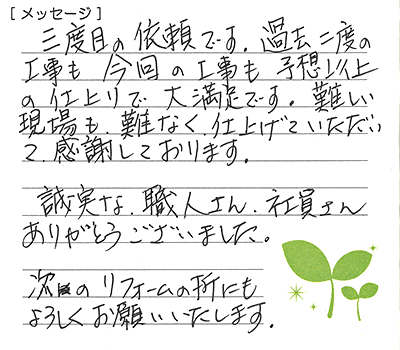 [メッセージ]
三度目の依頼です。過去二度の
工事も今回の工事も予想以上
の仕上りで大満足です。難しい
現場も、難なく、仕上げていただい
て、感謝しております。
誠実な、職人さん、社員さん
ありがとうございました。
次回のリフォームの折にも
よろしくお願いいたします。